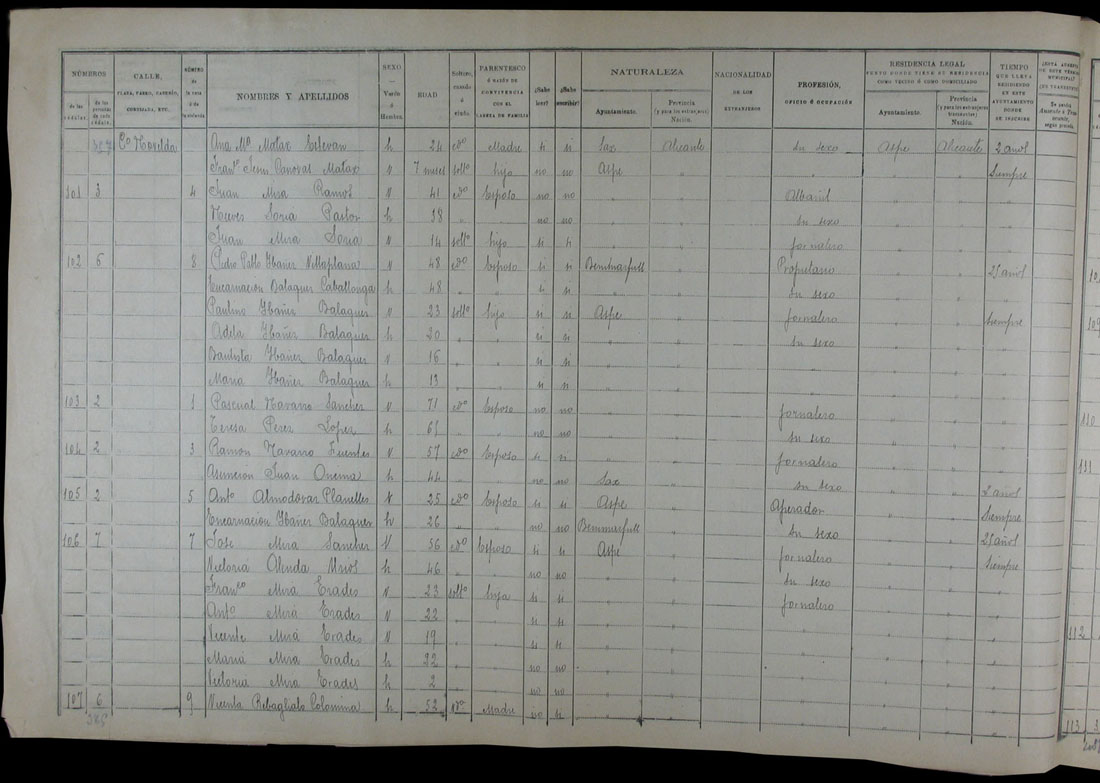 NÚMEROS
de las cédulas.
de las personas de cada cédula.
CALLE,
PLAZA, PASEO, CASERÍO,
CORTIJADA, ETC.
NÚMERO de la casa ó de la vivienda
NOMBRES Y APELLIDOS
SEXO — Varón ó Hembra.
EDAD
Soltero, casado ó viudo.
PARENTESCO
Ó RAZÓN DE CONVIVENCIA CON EL CABEZA DE FAMILIA
¿Sabe leer?
¿Sabe escribir?
NATURALEZA
Ayuntamiento.
Provincia (y para los extranjeros) Nación.
NACIONALIDAD
DE LOS EXTRANJEROS
PROFESIÓN,
OFICIO Ó OCUPACIÓN
RESIDENCIA LEGAL
PUNTO DONDE TIENE SU RESIDENCIA
COMO VECINO Ó COMO DOMICILIADO
Ayuntamiento.
Provincia (y para los extranjeros) Nación.
TIEMPO
QUE LLEVA RESIDIENDO EN ESTE AYUNTAMIENTO DONDE SE INSCRIBE
Cº Novelda Ana Mª Matax Estevan h 24 cdº Madre si si Sax Alicante su sexo Aspe Alicante 2 años
Matax v 7 meses soltº hijo no no Aspe " " " " Siempre
101 3 4 Juan Mira Ramos v 41 cdº Esposo no no " " Albañil " " "
Nieves Soria Pastor h 38 " " no no " " su sexo " " "
Juan Mira Soria v 14 soltº hijo si si " " jornalero " " "
102 6 8 Pedro Pablo Ibañez Villaplana v 48 cdº Esposo si si " Propietario " " 25 años
Encarnacion Balaguer h 48 " " si si " " su sexo " " "
Paulino Ibañez Balaguer v 23 soltº hijo si si Aspe " jornalero " " Siempre
Adela Ibañez Balaguer h 20 " " si si " " su sexo " " "
Bautista Ibañez Balaguer v 16 " " si si " " " " " "
Maria Ibañez Balaguer h 13 " " si si " " " " " "
103 2 1 Pascual Navarro Sanchez v 71 cdº Esposo no no " " jornalero " " "
Teresa Perez Lopez h " " no no " " su sexo " " "
104 2 3 Ramon Navarro Fuentes v 57 cdº Esposo si si " " jornalero " " "
Asuncion Juan h 44 " " no no Sax " su sexo " " 2 años
105 2 5 Antº Almodovar Planelles v 25 cdº Esposo si si Aspe " Aperador " " Siempre
Encarnacion Ibañez Balaguer h 26 " " no no " su sexo " " 25 años
106 7 7 Jose Mira Sanchez v 56 cdº Esposo si si Aspe " jornalero " " Siempre
Victoria h 46 " " no no " " su sexo " " "
Francº Mira Erades v 23 soltº hijo si si " " jornalero " " "
Antº Mira Erades v 22 " " si si " " " " " "
Vicente Mira Erades v 19 " " si si " " " " " "
Maria Mira Erades h 22 " " no no " " " " " "
Victoria Mira Erades h 2 " " no no " " " " " "
107 6 9 Vicenta Ribagliato Colomina h 52 Madre no si " " " " " "
110
111
112
113